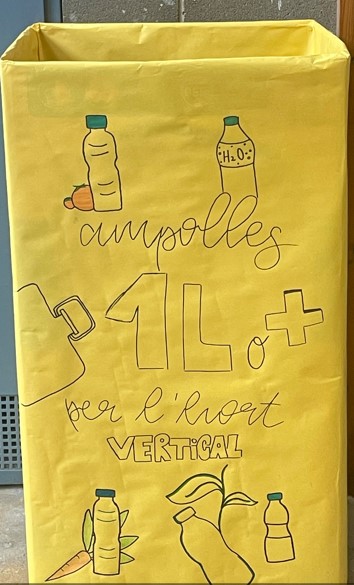 H₂O
ampolles
1L o +
per l'hort
VERTICAL